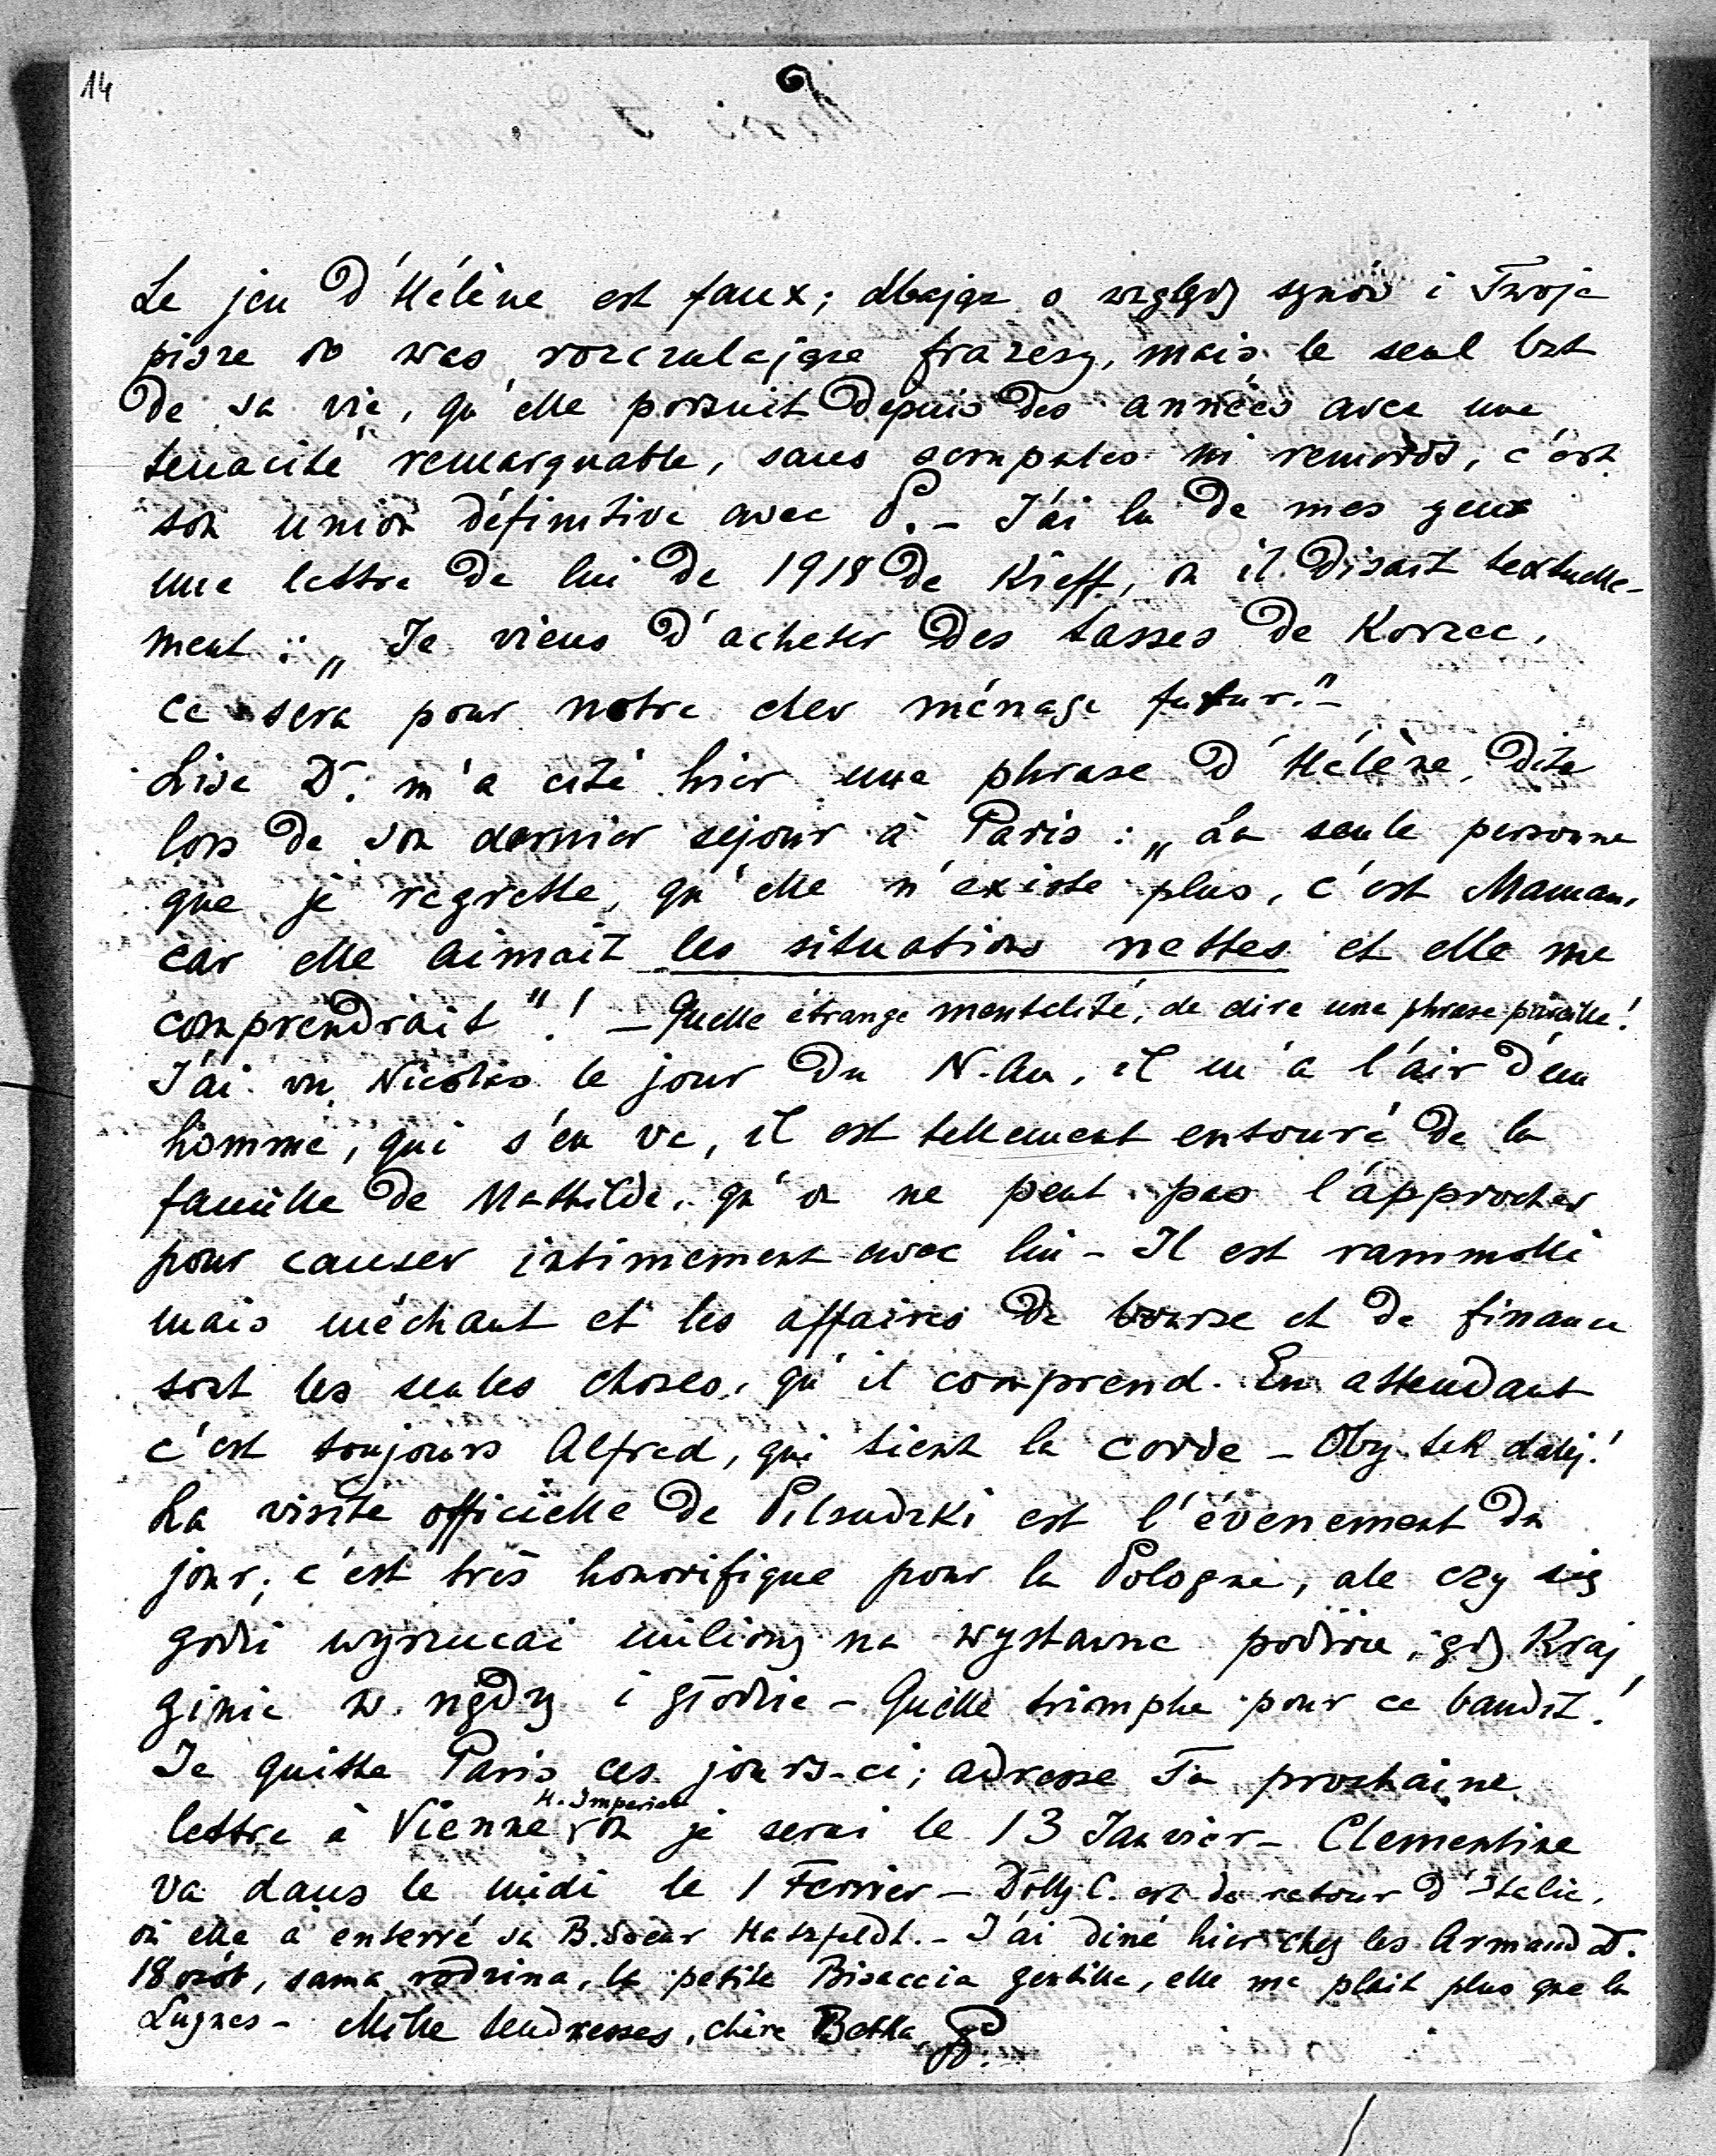 14
Le jeu d'Hélène est faux; dbając o względy synów i Twoje
pisze do was rozczulające frazesy, mais le seul but
de sa vie, qu'elle porsuit depuis des années avec une
tenacité remarquable, sans scrupules ni remords, c'est
son union définitive avec P. – J'ai lu de mes yeux
une lettre de lui de 1918 de Kieff, où il disait textuelle-
ment : „ Je viens d'acheter des tasses de Korzec,
ce sera pour notre cher ménage futur." –
Lise D. m'a cité hier une phrase d'Hélène, dite
lors de son dernier séjour à Paris : „ La seule personne
que je regrette, qu'elle n'existe plus, c'est Maman,
car elle aimait les situations nettes et elle me
comprendrait "! – Quelle étrange mentalité, de dire une phrase pareille!
J'ai vu Nicolas le jour du N. An, il m'a l'air d'un
homme, qui s'en va, il est tellement entouré de la
famille de Mathilde, qu'on ne peut pas l'approcher
pour causer intimement avec lui – Il est rammolli
mais méchant et les affaires de bourse et de finance
sont les seules choses, qu'il comprend. En attendant
c'est toujours Alfred, qui tient la corde – Oby tak dalej!
La visite officielle de Pilsudzki est l'évènement du
jour; c'est très honorifique pour la Pologne, ale czy się
godzi wyrzucać miliony na wystawne podróże, gdy Kraj
ginie w nędzy i głodzie – Quelle triomphe pour ce bandit!
Je quitte Paris ces jours-ci; adresse Ta prochaine
H. Imperial
lettre à Vienne, où je serai le 13 Janvier – Clementine
va dans le midi le 1 Fevrier – Dolly C. est de retour d'Italie,
où elle a enterré sa B. Soeur Hatzfeldt. – J'ai diné hier chez les Armand D.
18 osób, sama rodzina, la petite Bisaccia gentille, elle me plait plus que la
Luynes – Mille tendresses, chère Betka